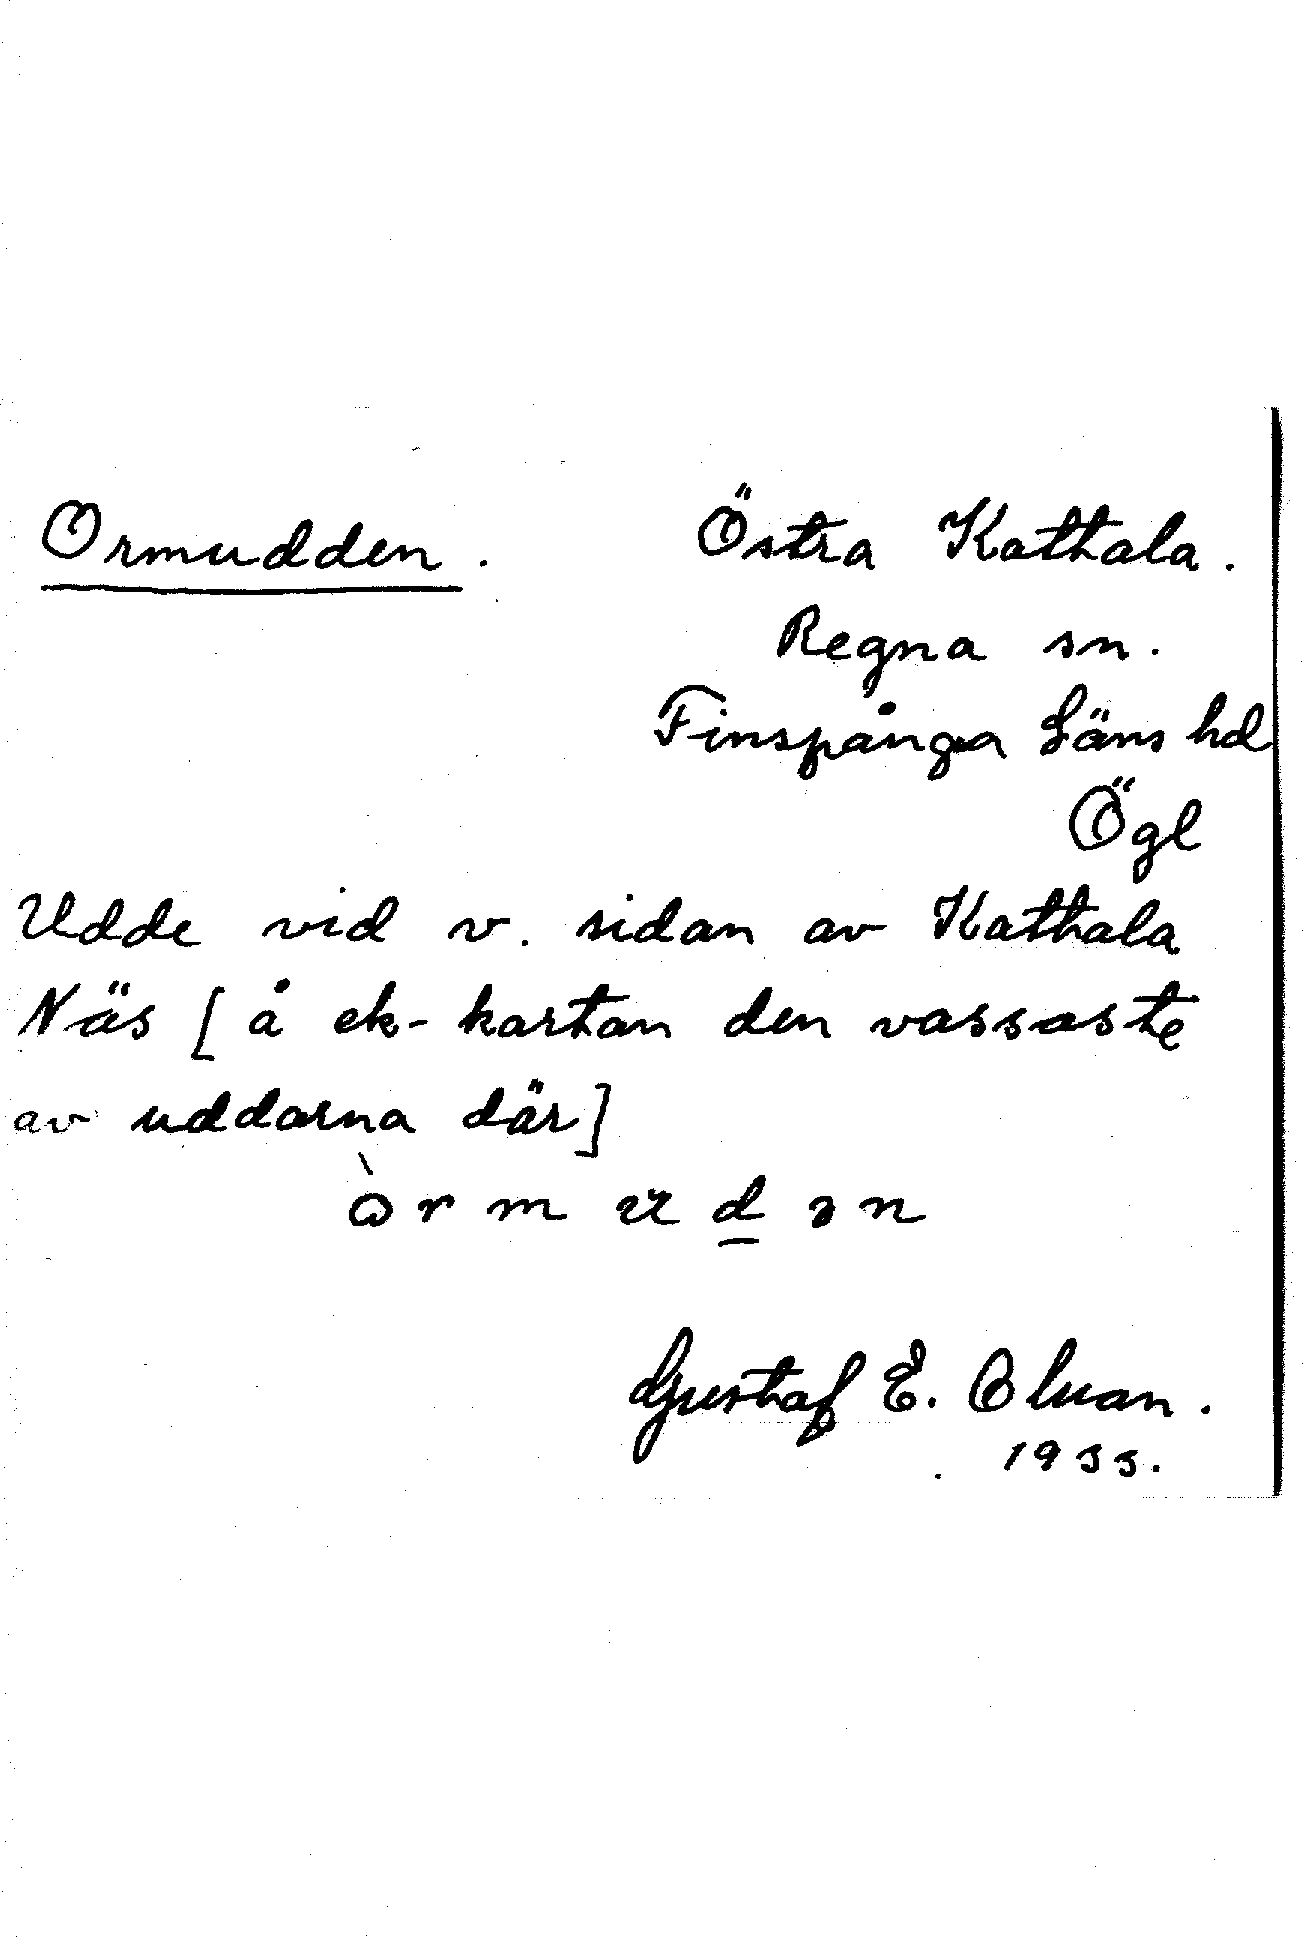 Ormudden. Östra Katthala.
Regna sn.
Finspånga Läns hd
Ögl
Udde vid v. sidan av Katthala
Näs [å ek-kartan den vassaste
av uddarna där]
Gustaf E.
1933.